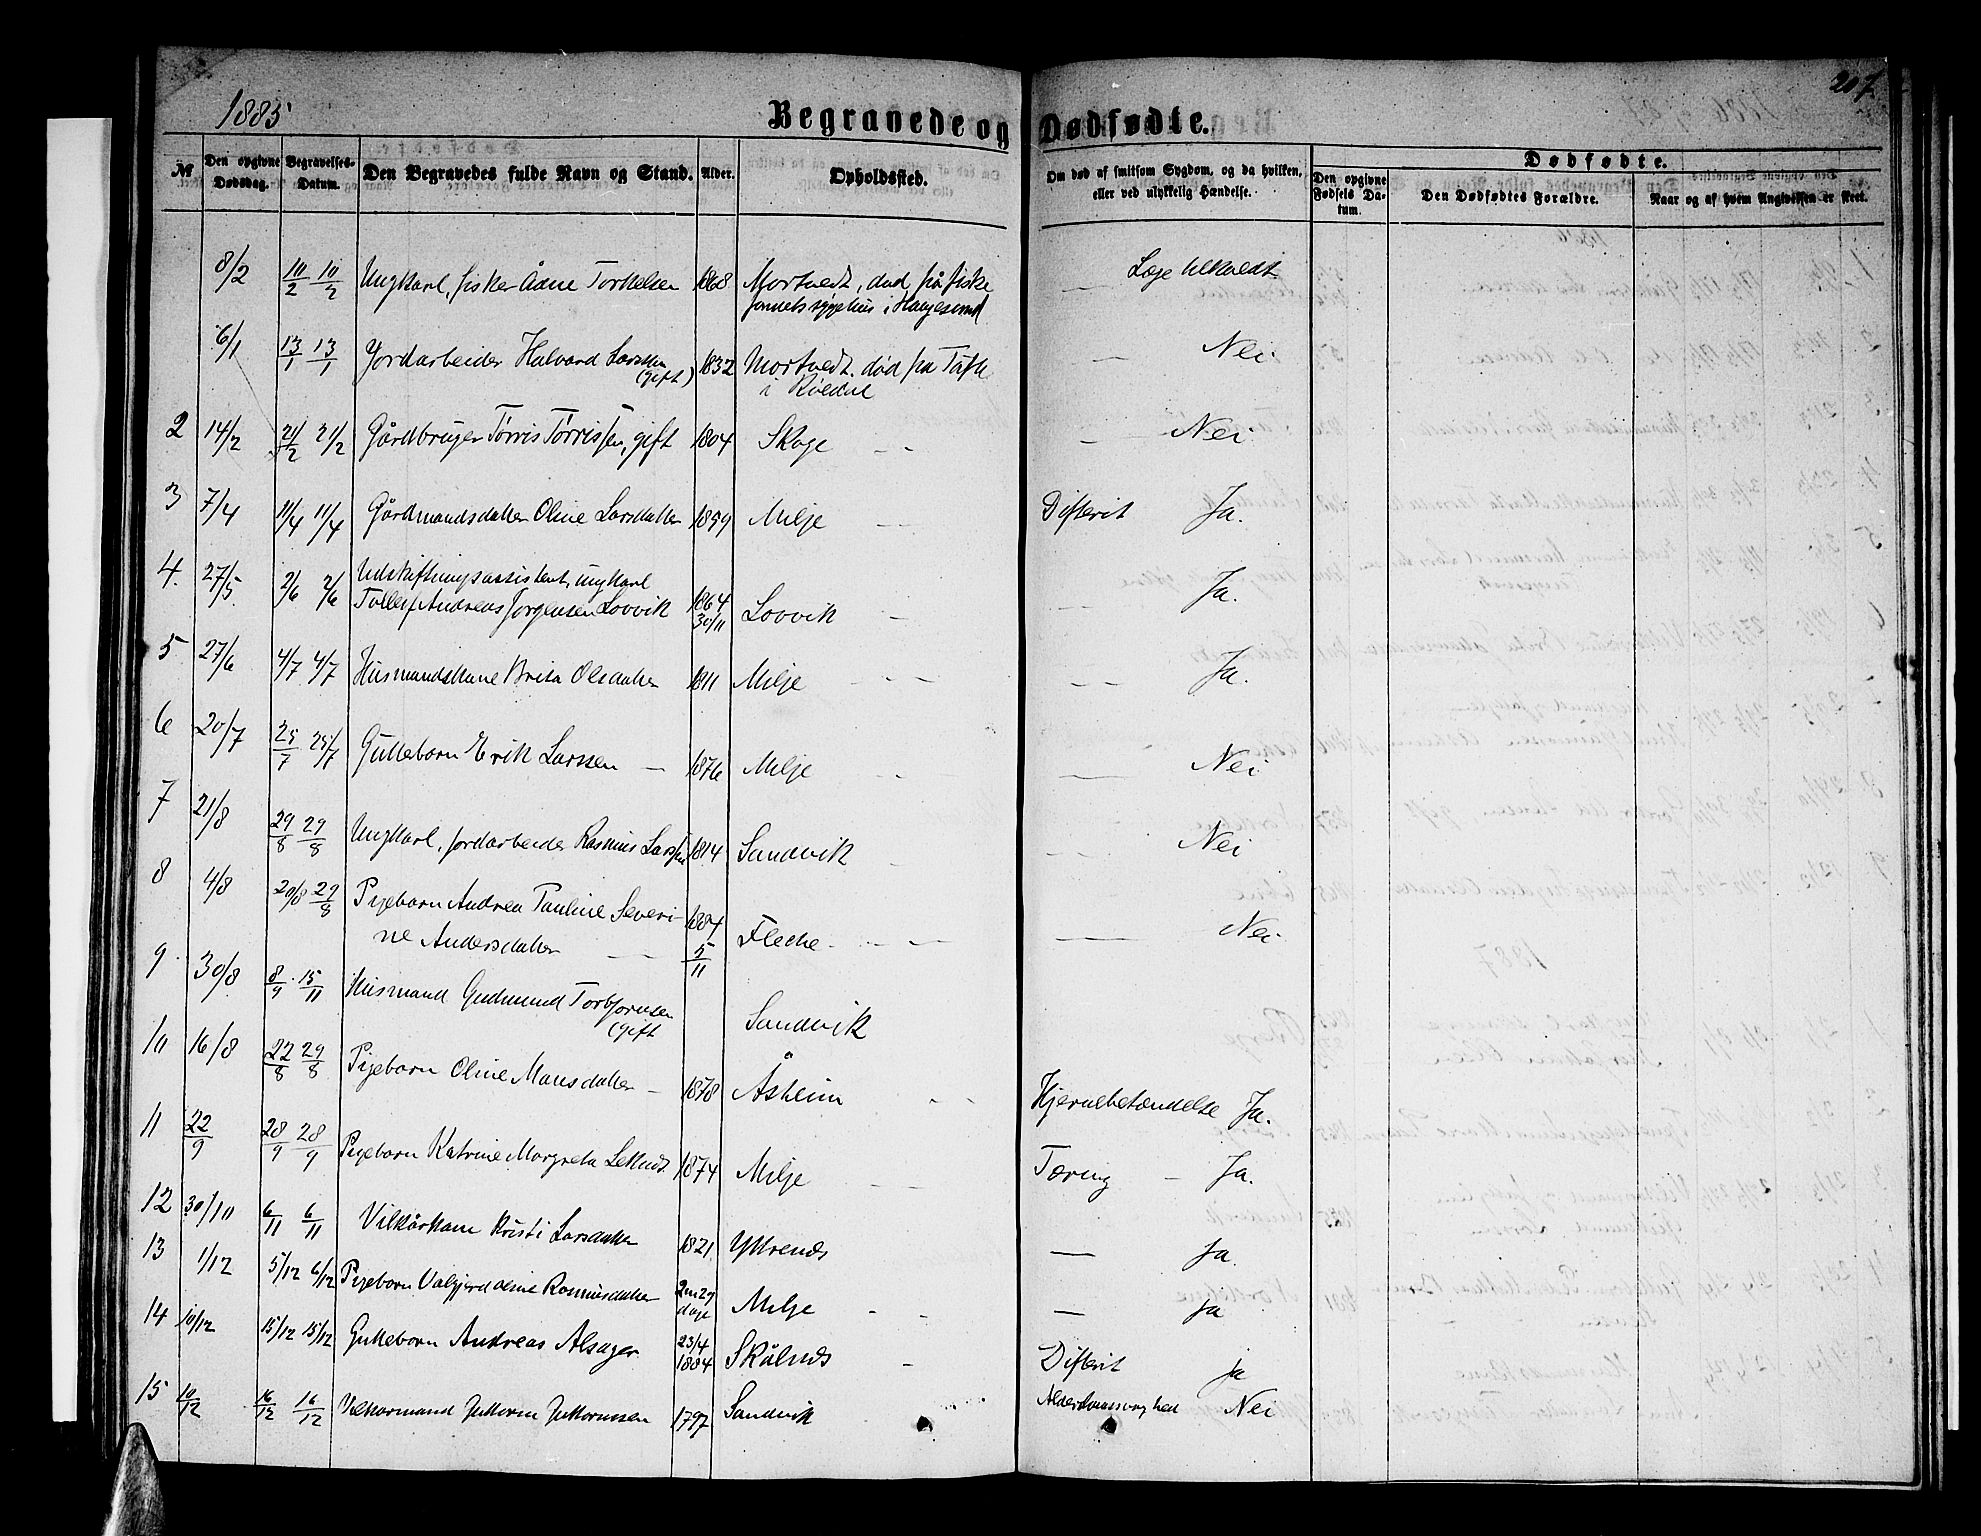 1885
Begravede og Dødfødte.
207
№
Den opgivne Dødsdag.
Begravelses-Datum.
Den Begravedes fulde Navn og Stand.
Alder.
Opholdssted.
Om død af smitsom Sygdom, og da hvilken, eller ved ulykkelig Hændelse.
Dødfødte.
Den opgivne Fødsels Datum.
Den Dødfødtes Forældre.
Naar og af hvem Angivelsen er skeet.
8/2 10/2 10/2 Ungkarl, fisker Ådne Torkelsen 1868 Mortvedt, død på fiske Læge tilkaldt
i Haugesund
6/1 13/1 13/1 Jordarbeider Halvard Larssen 1832 Mortvedt. død på Nei
(gift) i Røldal
2 14/2 21/2 21/2 Gårdbruger Tørris Tørrissen, gift 1804 Skoge Nei
3 7/4 11/4 11/4 Gårdmandsdatter Oline Larsdatter 1859 Milje Difterit Ja.
4. 27/5 2/6 2/6 Udskiftningsassistent, ungkarl
Tollef Andreas Jørgensen Lovvik 1864 30/11 Lovvik Ja.
5 27/6 4/7 4/7 Husmandskone Brita Olsdatter 1811 Milje Ja.
6 20/7 25/7 25/7 Gutteborn Erik Larssen 1876 Milje Nei
7 21/8 29/8 29/8 Ungkarl, jordarbeider Rasmus Larssen 1814 Sandvik Nei
8 4/8 20/8 29/8 Pigeborn Andrea Pauline Severi-
ne Andersdatter 1884 5/11 Fleche Nei
9 30/8 8/9 15/11 Husmand Gudmund Torbjørnsen
(gift Sandvik
10 16/8 22/8 29/8 Pigeborn Oline Mansdatter 1878 Åsheim Hjernebetændelse Ja.
11 22/9 28/9 28/9 Pigeborn Katrine Margreta 1874 Milje Tæring Ja.
12 30/10 6/11 6/11 Vilkårkone Kristi Larsdatter 1821 Ytrenes Ja
13 1/12 5/12 6/12 Pigeborn Valgjerd Oline Rasmusdatter 2m 29 dage Milje Ja
14 10/12 15/12 15/12 Gutteborn Andreas Alsager 23/4 1884 Skålnes Difterit ja
15 10/12 16/12 16/12 Vilkårmand Guttorm Guttormssen 1797 Sandvik Alderdomssvaghed Nei